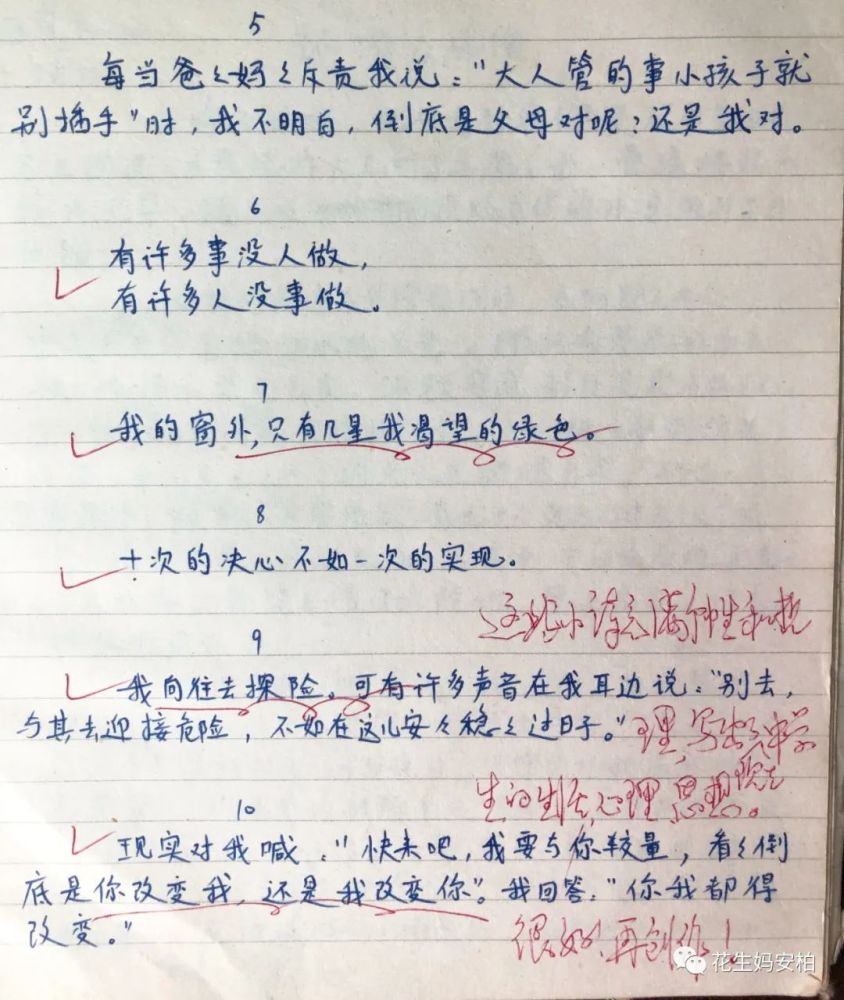 5
每当爸々妈々斥责我说："大人管的事小孩子就
别插手"时，我不明白，倒底是父母对呢？还是我对。
6
有许多事没人做，
有许多人没事做。
7
我的窗外，只有几星我渴望的绿色。
8
十次的决心不如一次的实现。
这些小诗充满个性和哲
9
我向往去探险。可有许多声音在我耳边说："别去，
与其去迎接危险，不如在这儿安々稳々过日子。"
理，写出了中学
生的生活，心理，思想。
10
现实对我喊："快来吧，我要与你较量，看々倒
底是你改变我，还是我改变你"。我回答："你我都得
改变。"
很好，再创作！
花生妈安柏